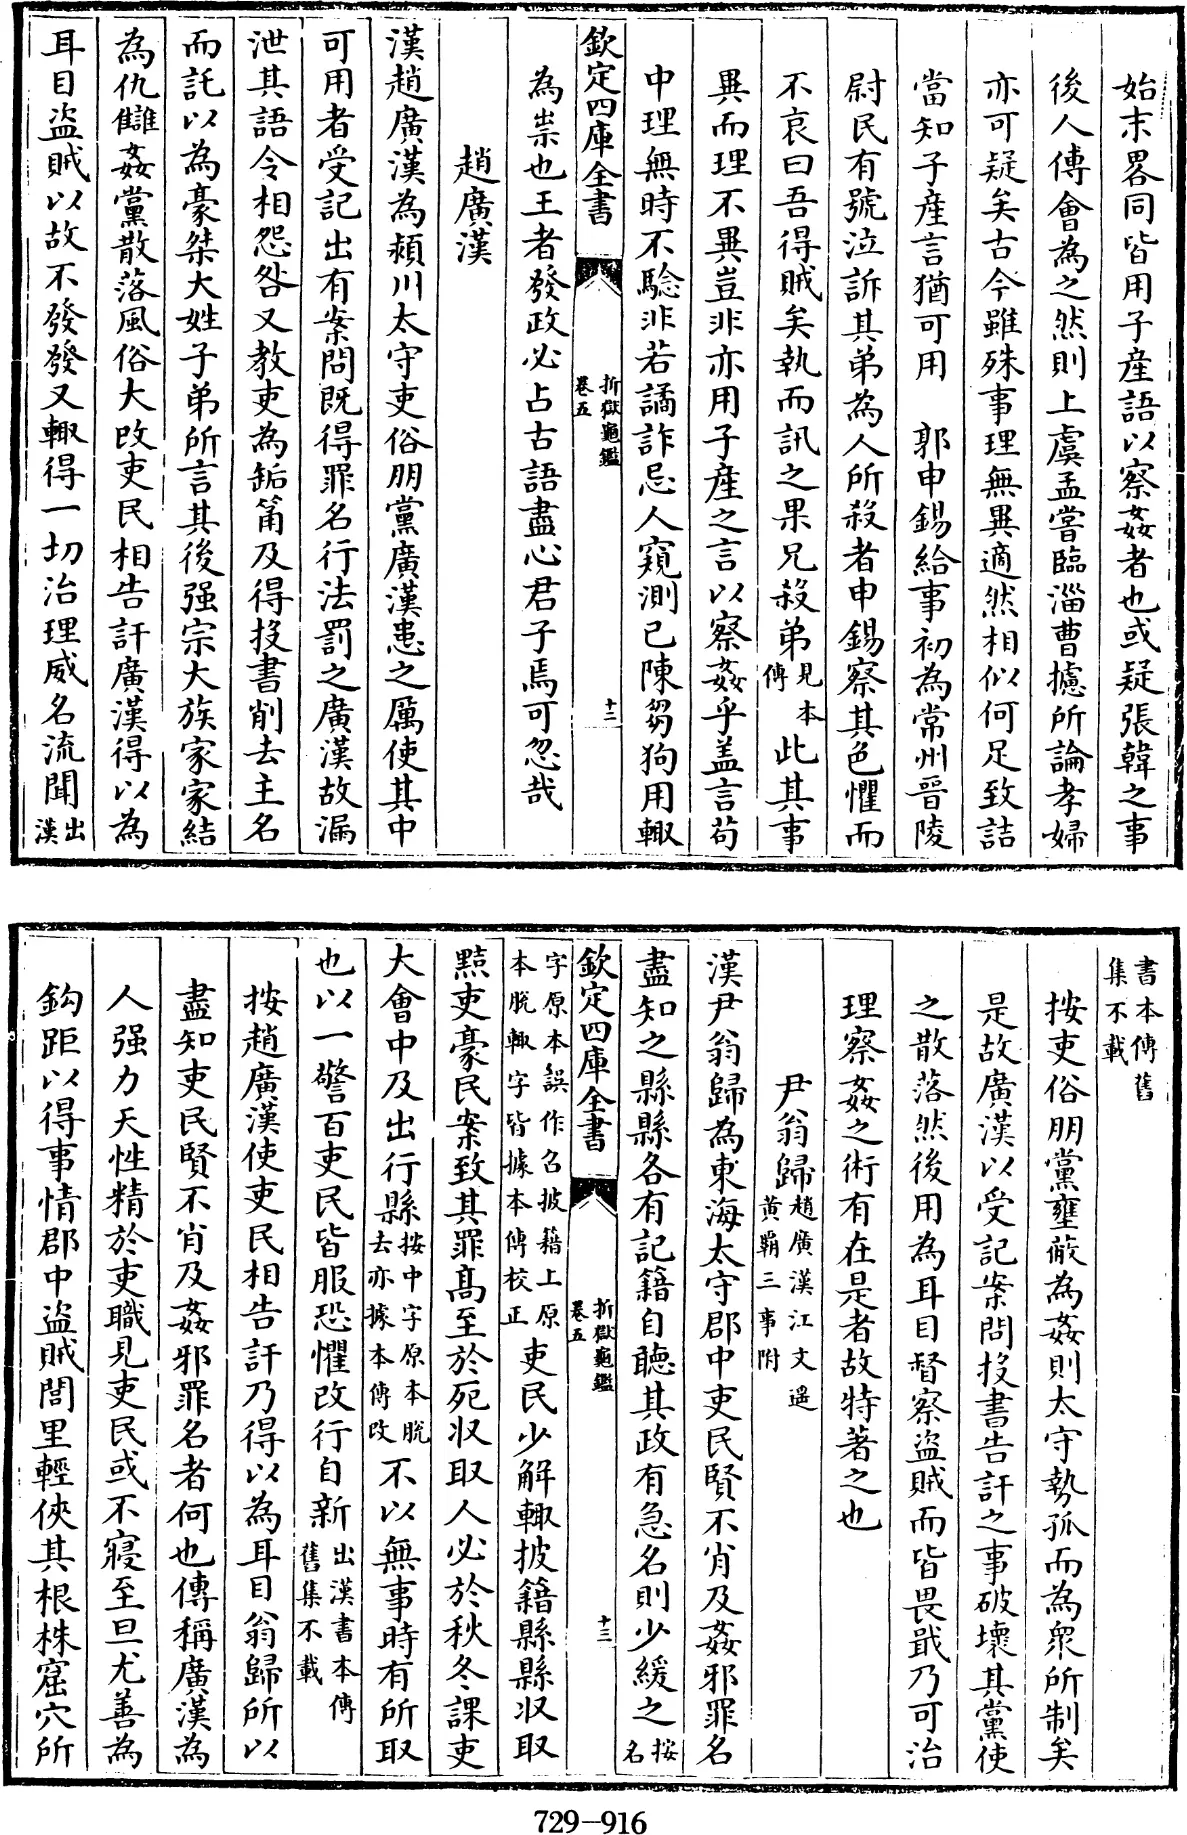 始末畧同皆用子産語以察姦者也或疑張韓之事
後人傅會為之然則上虞孟嘗臨淄曹攄所論孝婦
亦可疑矣古今雖殊事理無異適然相似何足致詰
當知子産言猶可用　郭申錫給事初為常州晉陵
尉民有號泣訴其弟為人所殺者申錫察其色懼而
不哀曰吾得賊矣執而訊之果兄殺弟見本傳此其事
異而理不異豈非亦用子産之言以察姦乎盖言苟
中理無時不驗非若譎詐忌人窺測已陳芻狗用輙
欽定四庫全書　折獄龜鑑卷五　十二
為祟也王者發政必占古語盡心君子焉可忽哉
趙廣漢
漢趙廣漢為潁川太守吏俗朋黨廣漢患之厲使其中
可用者受記出有案問既得罪名行法罰之廣漢故漏
泄其語令相怨咎又教吏為缿筩及得投書削去主名
而託以為豪桀大姓子弟所言其後强宗大族家家結
為仇讎姦黨散落風俗大改吏民相告訐廣漢得以為
耳目盜賊以故不發發又輙得一切治理威名流聞出漢
書本傳舊集不載
按吏俗朋黨壅蔽為姦則太守勢孤而為衆所制矣
是故廣漢以受記案問投書告訐之事破壞其黨使
之散落然後用為耳目督察盜賊而皆畏戢乃可治
理察姦之術有在是者故特著之也
尹翁歸趙廣漢江文遥黄霸三事附
漢尹翁歸為東海太守郡中吏民賢不肖及姦邪罪名
盡知之縣縣各有記籍自聽其政有急名則少緩之按名
字原本誤作召披籍上原本脱輙字皆據本傳校正吏民少解輙披籍縣縣収取
欽定四庫全書　折獄龜鑑卷五　十三
黠吏豪民案致其罪髙至於死収取人必於秋冬課吏
大會中及出行縣按中字原本脱去亦據本傳改不以無事時有所取
也以一警百吏民皆服恐懼改行自新出漢書本傳舊集不載
按趙廣漢使吏民相告訐乃得以為耳目翁歸所以
盡知吏民賢不肖及姦邪罪名者何也傳稱廣漢為
人强力天性精於吏職見吏民或不寢至旦尤善為
鈎距以得事情郡中盜賊閭里輕俠其根株窟穴所
729-916